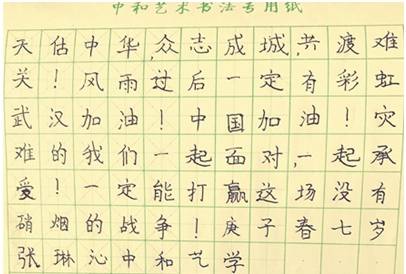 中和艺术书法专用纸
天估中华,众志成城,共渡难
关!风雨过后一定有彩虹
武汉加油!中国加油!灾
难的我们一起面对,一起承
爱!一定能打赢这场没有
硝烟的战争!庚子春七岁
张琳沁中和艺学